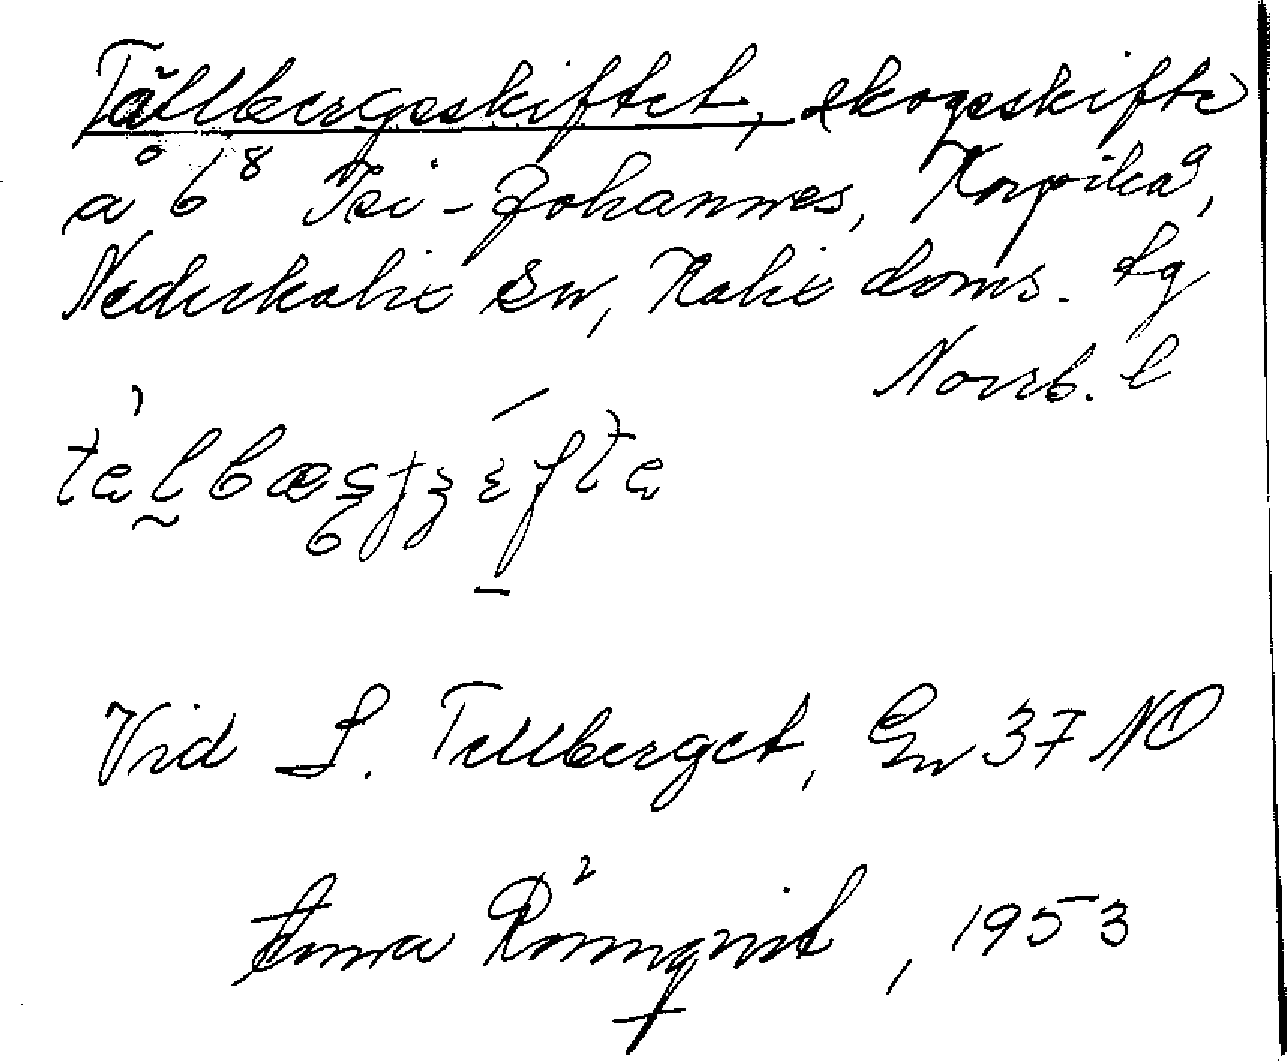 Tållbergsskiftet, skogsskifte
å 6⁸ Isi-Johannes, Korpikå,
Nederkalix sn, Kalix doms. lg
Norrb. l
Vid S. Tellberget, Gn 37 NO
Anna Rönnqvist, 1953